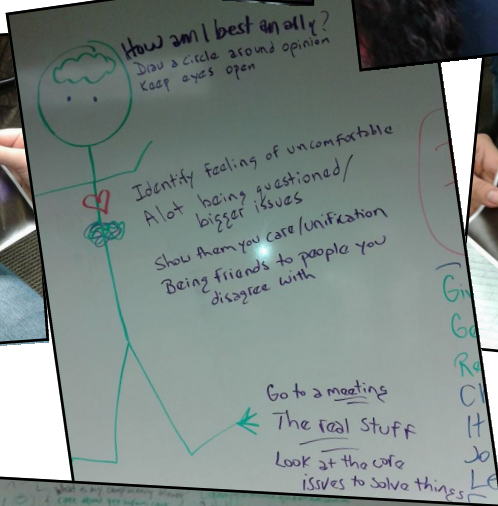 How am I best an ally?
Draw a circle around opinion
Keep eyes open
Identify feeling of uncomfortable
Alot being questioned/
bigger issues
Show them you care/unification
Being friends to people you
disagree with
Go to a meeting
The real stuff
Look at the core
issues to solve things
Gi
Ge
Re
Cl
It
Jo
Le